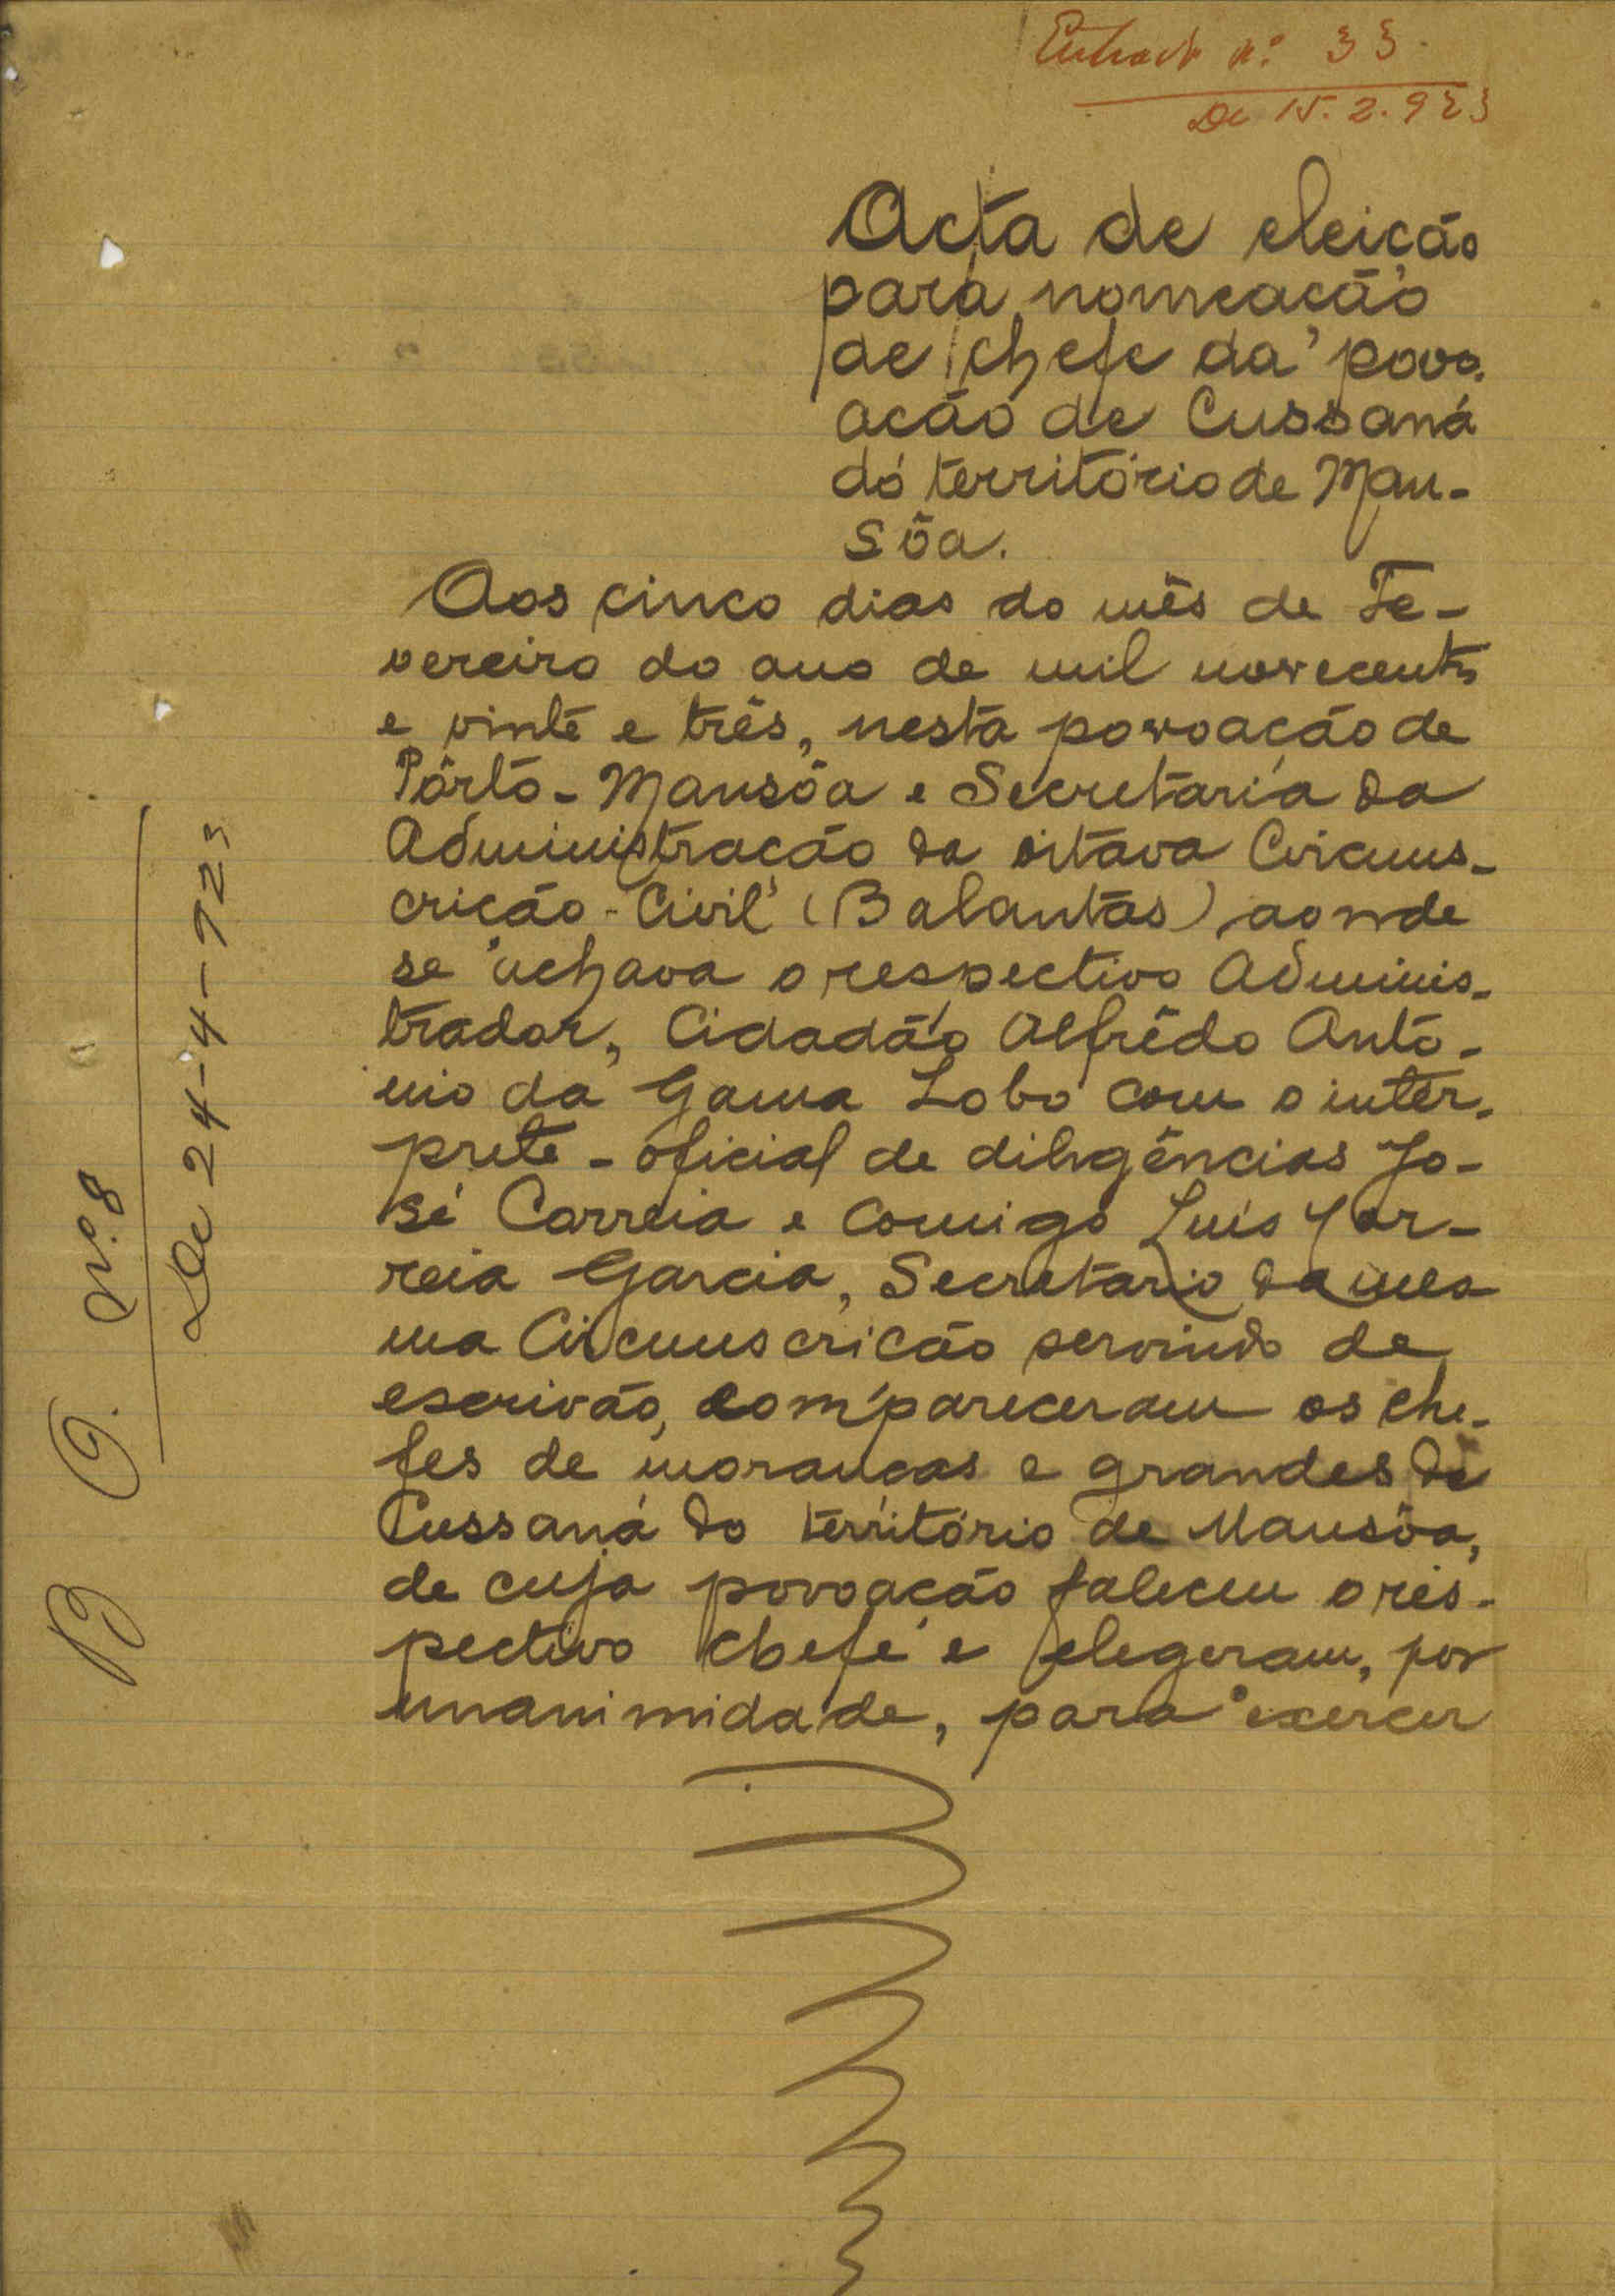 Extracto n.º 33
De 15.2.923
Acta de eleição
para nomeação
de chefe da povo-
ação de Cussaná
do território de Man-
sôa.
Aos cinco dias do mês de Fe-
vereiro do ano de mil novecentos
e vinte e três, nesta povoação de
Pôrto-Mansôa e Secretaria da
Administração da oitava Circuns-
crição-Civil (Balantas) aonde
se achava o respectivo Adminis-
trador, Cidadão Alfrêdo Antó-
nio da Gama Lobo com o intér-
prete-oficial de diligências Jo-
sé Correia e comigo Luís Cor-
reia Garcia, Secretário da mes-
ma Circunscrição servindo de
escrivão, compareceram os che-
fes de moranças e grandes de
Cussaná do território de Mansôa,
de cuja povoação faleceu o res-
pectivo chefe e elegeram, por
unanimidade, para exercer
B O. N.º 8
De 24-4-923